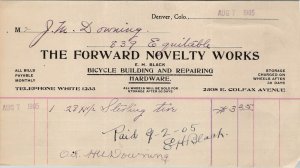 Denver, Colo., AUG 7 1905
M J. M. Downing
839 Equitable
THE FORWARD NOVELTY WORKS
E. H. BLACK
BICYCLE BUILDING AND REPAIRING
HARDWARE.
ALL BILLS
PAYABLE
MONTHLY
ALL WHEELS WILL BE SOLD FOR
STORAGE
CHARGED ON
WHEELS AFTER
30 DAYS
TELEPHONE WHITE 1253
2508 E. COLFAX AVENUE
AUG 7 1905 1 28 1/2 Sterling tire 3 25
Paid 9-2-05
E H Black
OK JM Downing